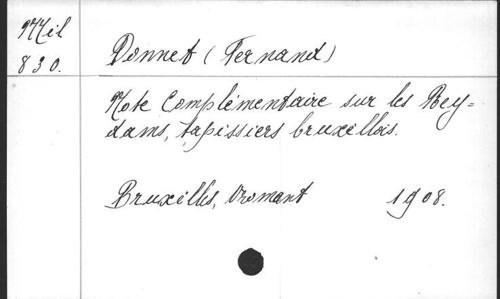 Mél
830.
Donnet (Fernand)
Note Complémentaire sur les Rey=
dams, tapissiers bruxellois.
Bruxelles, Vromant 1908.